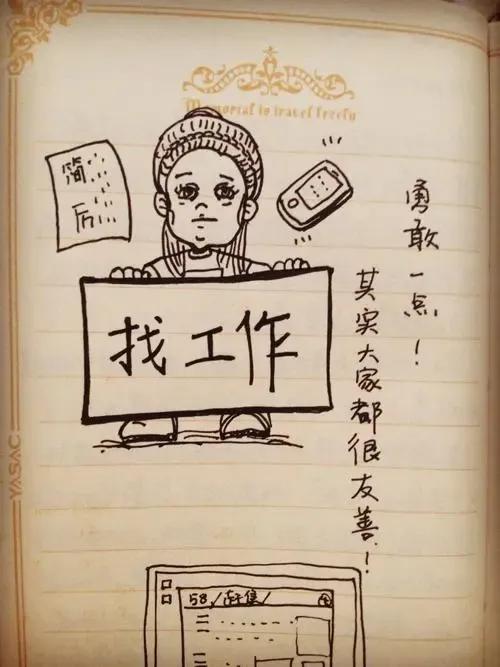 Memorial to travel freely
简
历
找工作
勇敢一点！
其实大家都很友善！
YASAC
58./赶集/